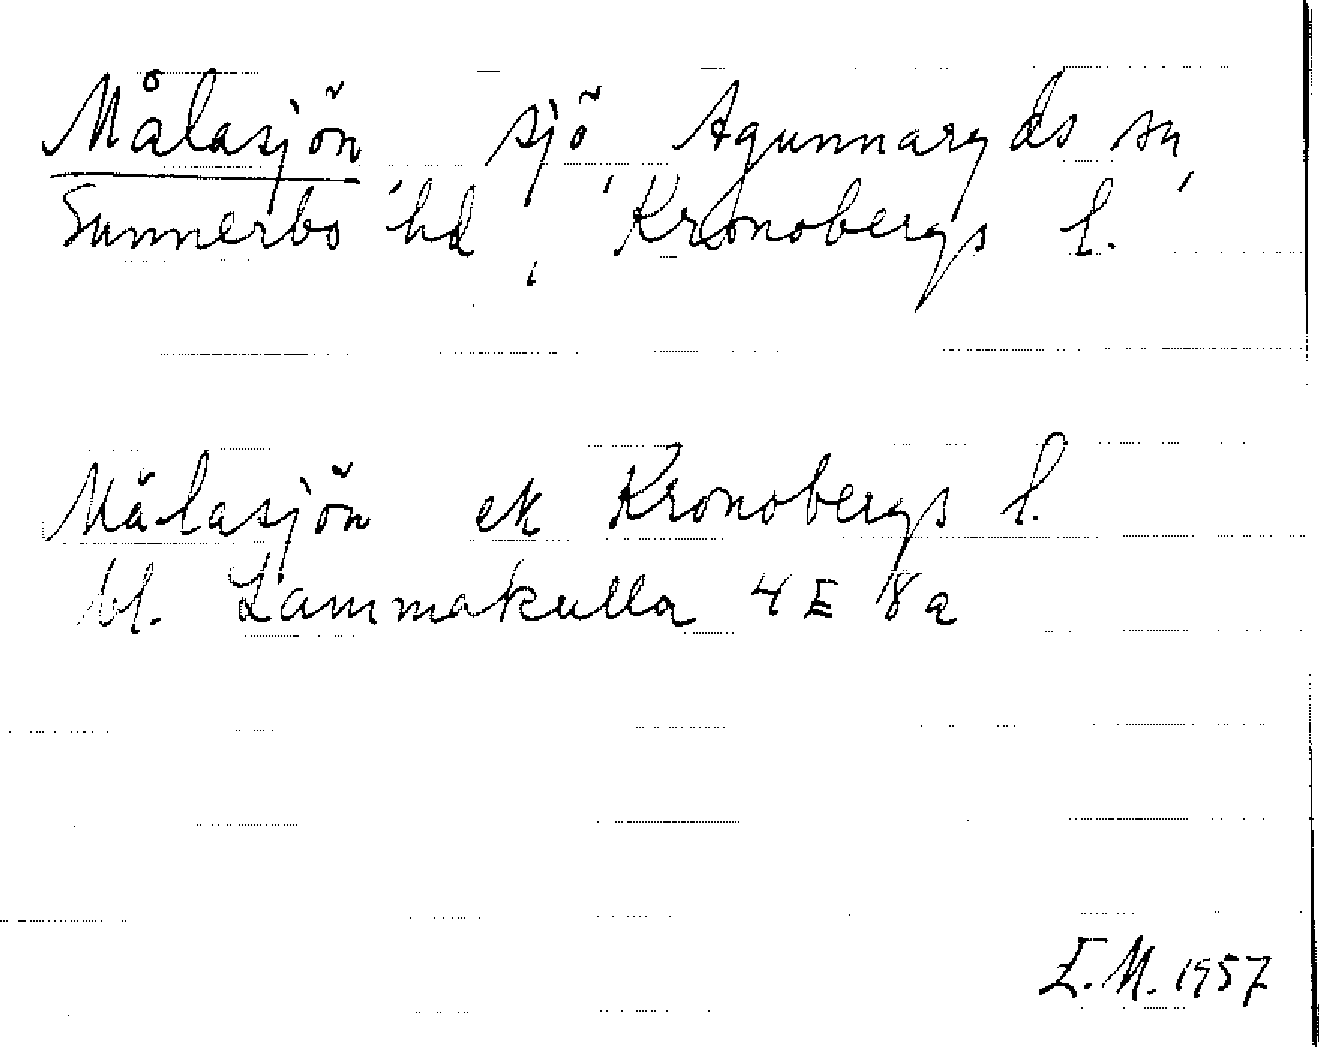 Målasjön, sjö, Agunnaryds sn,
Sunnerbo hd, Kronobergs l.
Målasjön ek Kronobergs l.
bl. Lammakulla 4 E 8 a
E.M. 1957